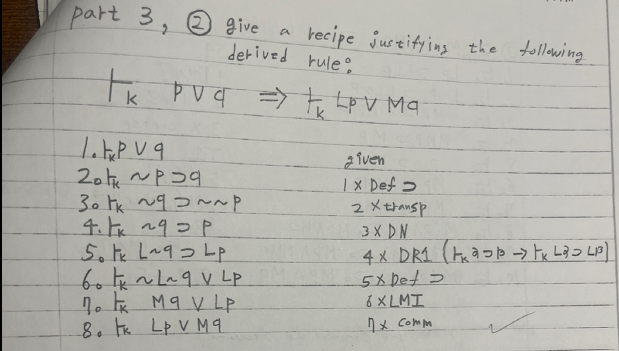 part 3, ② give a recipe justifying the following
derived rule:
⊢K p ∨ q ⇒ ⊢K Lp ∨ Mq
1. ⊢K p ∨ q given
2. ⊢K ~p ⊃ q 1 × Def ⊃
3. ⊢K ~q ⊃ ~~p 2 × transp
4. ⊢K ~q ⊃ p 3 × DN
5. ⊢K L~q ⊃ Lp 4 × DR1 (⊢K α ⊃ β → ⊢K Lα ⊃ Lβ)
6. ⊢K ~L~q ∨ Lp 5 × Def ⊃
7. ⊢K Mq ∨ Lp 6 × LMI
8. ⊢K Lp ∨ Mq 7 × comm ✓